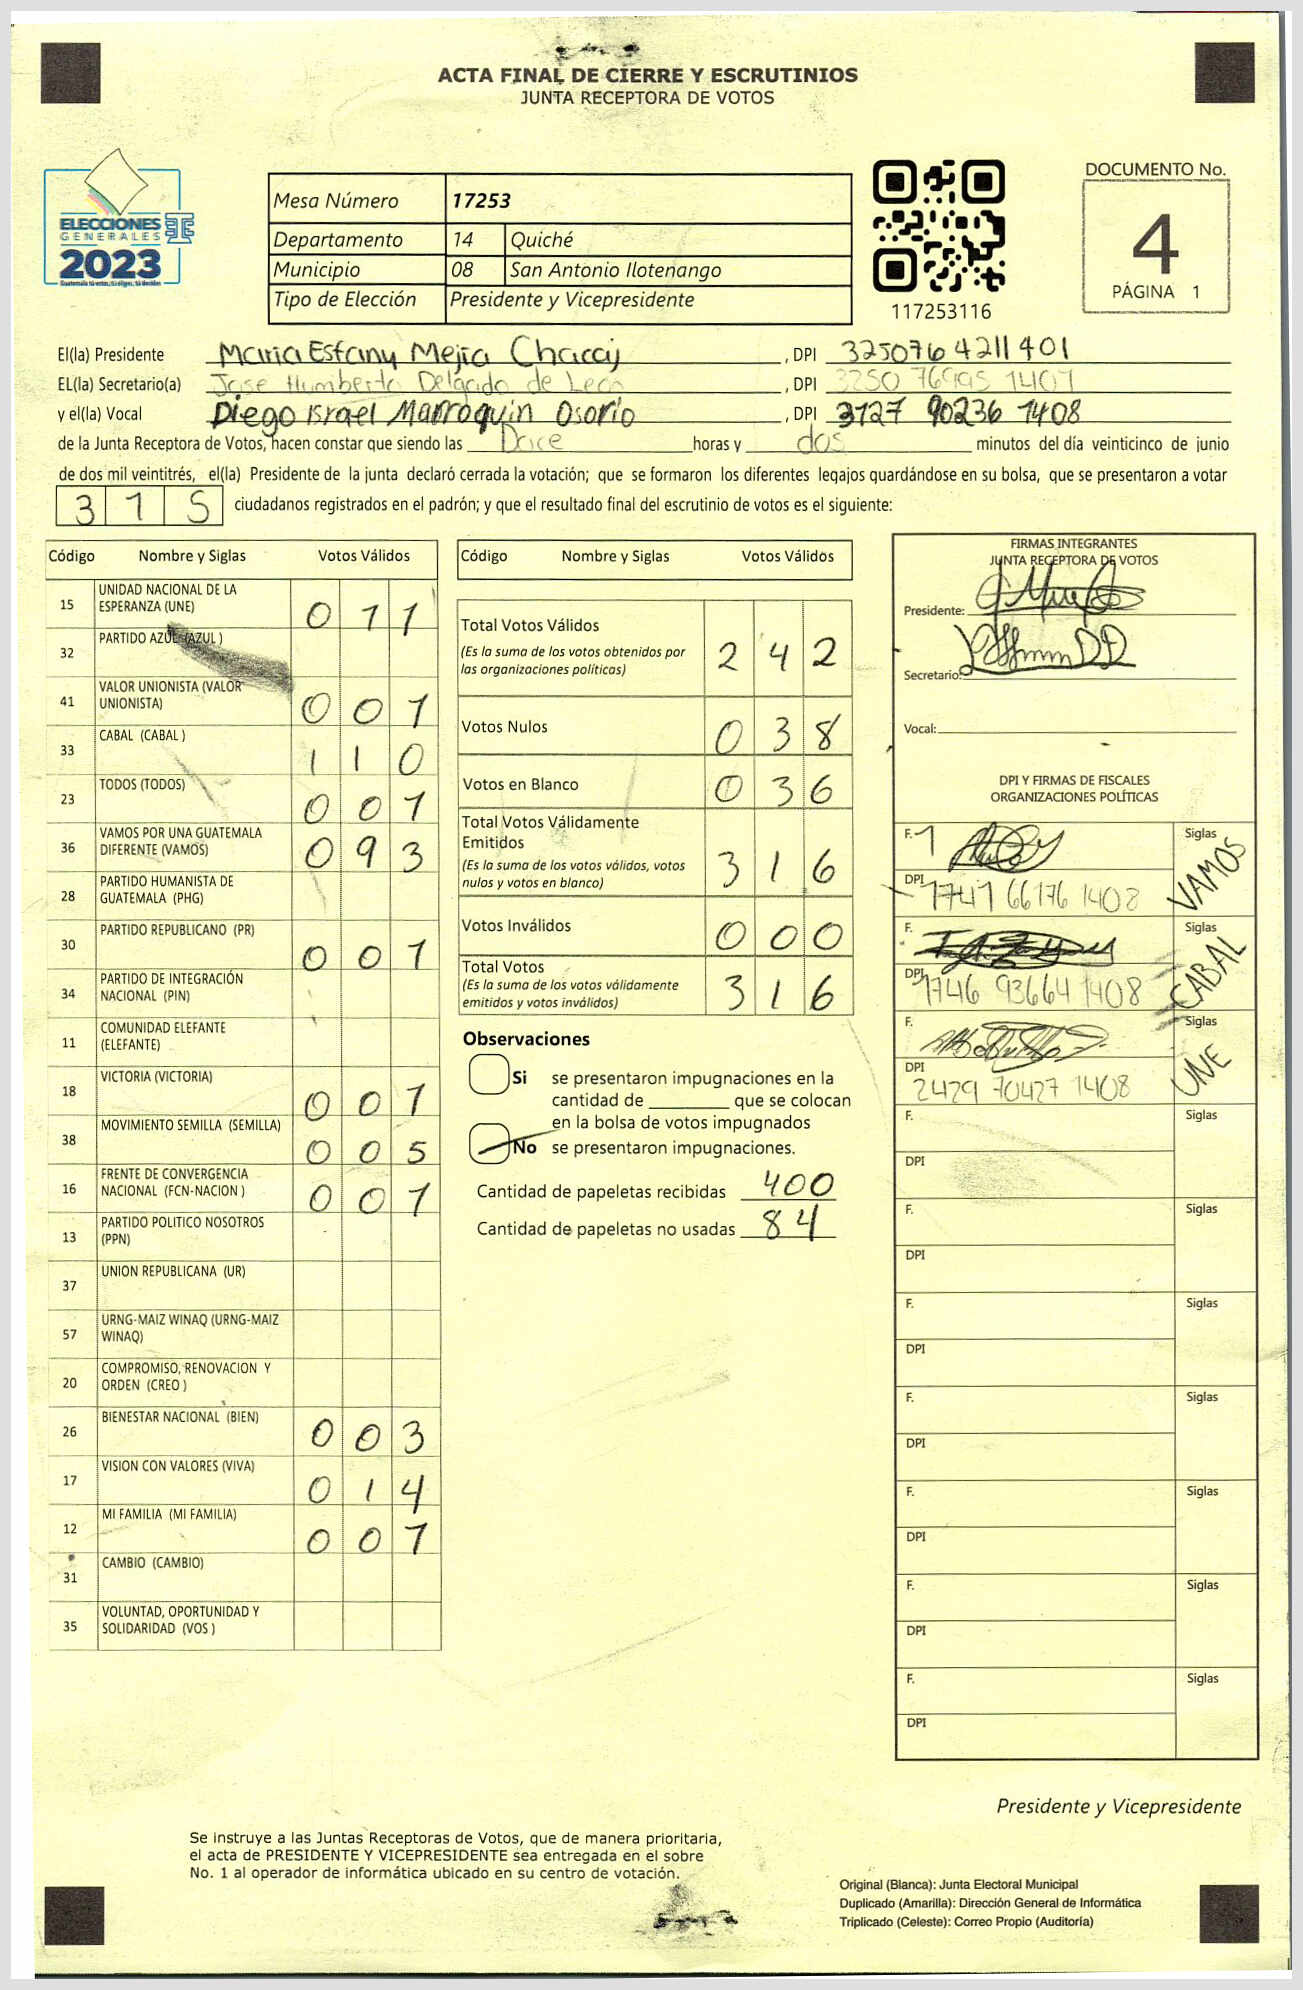 ACTA FINAL DE CIERRE Y ESCRUTINIOS
JUNTA RECEPTORA DE VOTOS
ELECCIONES
GENERALES
2023
Guatemala tú votas, tú eliges, tú decides
Mesa Número 17253
Departamento 14 Quiché
Municipio 08 San Antonio Ilotenango
Tipo de Elección Presidente y Vicepresidente
117253116
DOCUMENTO No.
4
PÁGINA 1
El(la) Presidente Maria Estany Mejia Chacaj, DPI 3250764211401
EL(la) Secretario(a) Jose Humberto Delgado de Leon, DPI 3250 76995 1401
y el(la) Vocal Diego Israel Marroquin Osorio, DPI 3127 90236 1408
de la Junta Receptora de Votos, hacen constar que siendo las Doce horas y dos minutos del día veinticinco de junio
de dos mil veintitrés, el(la) Presidente de la junta declaró cerrada la votación; que se formaron los diferentes legajos guardándose en su bolsa, que se presentaron a votar
3 1 5 ciudadanos registrados en el padrón; y que el resultado final del escrutinio de votos es el siguiente:
Código Nombre y Siglas Votos Válidos
15 UNIDAD NACIONAL DE LA
ESPERANZA (UNE) 0 1 1
32 PARTIDO AZUL (AZUL )
41 VALOR UNIONISTA (VALOR
UNIONISTA) 0 0 1
33 CABAL (CABAL ) 1 1 0
23 TODOS (TODOS) 0 0 1
36 VAMOS POR UNA GUATEMALA
DIFERENTE (VAMOS) 0 9 3
28 PARTIDO HUMANISTA DE
GUATEMALA (PHG)
30 PARTIDO REPUBLICANO (PR) 0 0 1
34 PARTIDO DE INTEGRACIÓN
NACIONAL (PIN)
11 COMUNIDAD ELEFANTE
(ELEFANTE)
18 VICTORIA (VICTORIA) 0 0 1
38 MOVIMIENTO SEMILLA (SEMILLA) 0 0 5
16 FRENTE DE CONVERGENCIA
NACIONAL (FCN-NACION ) 0 0 1
13 PARTIDO POLITICO NOSOTROS
(PPN)
37 UNION REPUBLICANA (UR)
57 URNG-MAIZ WINAQ (URNG-MAIZ
WINAQ)
20 COMPROMISO, RENOVACION Y
ORDEN (CREO )
26 BIENESTAR NACIONAL (BIEN) 0 0 3
17 VISION CON VALORES (VIVA) 0 1 4
12 MI FAMILIA (MI FAMILIA) 0 0 1
31 CAMBIO (CAMBIO)
35 VOLUNTAD, OPORTUNIDAD Y
SOLIDARIDAD (VOS )
Código Nombre y Siglas Votos Válidos
Total Votos Válidos
(Es la suma de los votos obtenidos por
las organizaciones políticas) 2 4 2
Votos Nulos 0 3 8
Votos en Blanco 0 3 6
Total Votos Válidamente
Emitidos
(Es la suma de los votos válidos, votos
nulos y votos en blanco) 3 1 6
Votos Inválidos 0 0 0
Total Votos
(Es la suma de los votos válidamente
emitidos y votos inválidos) 3 1 6
Observaciones
Si se presentaron impugnaciones en la
cantidad de ________ que se colocan
en la bolsa de votos impugnados
No se presentaron impugnaciones.
Cantidad de papeletas recibidas 400
Cantidad de papeletas no usadas 84
FIRMAS INTEGRANTES
JUNTA RECEPTORA DE VOTOS
Presidente:
Secretario:
Vocal:
DPI Y FIRMAS DE FISCALES
ORGANIZACIONES POLÍTICAS
F. Siglas
DPI 1741 66176 1408 VAMOS
F. Siglas
DPI 1746 93664 1408 CABAL
F. Siglas
DPI 2429 70427 1408 UNE
F. Siglas
DPI
F. Siglas
DPI
F. Siglas
DPI
F. Siglas
DPI
F. Siglas
DPI
F. Siglas
DPI
F. Siglas
DPI
Presidente y Vicepresidente
Se instruye a las Juntas Receptoras de Votos, que de manera prioritaria,
el acta de PRESIDENTE Y VICEPRESIDENTE sea entregada en el sobre
No. 1 al operador de informática ubicado en su centro de votación.
Original (Blanca): Junta Electoral Municipal
Duplicado (Amarilla): Dirección General de Informática
Triplicado (Celeste): Correo Propio (Auditoría)